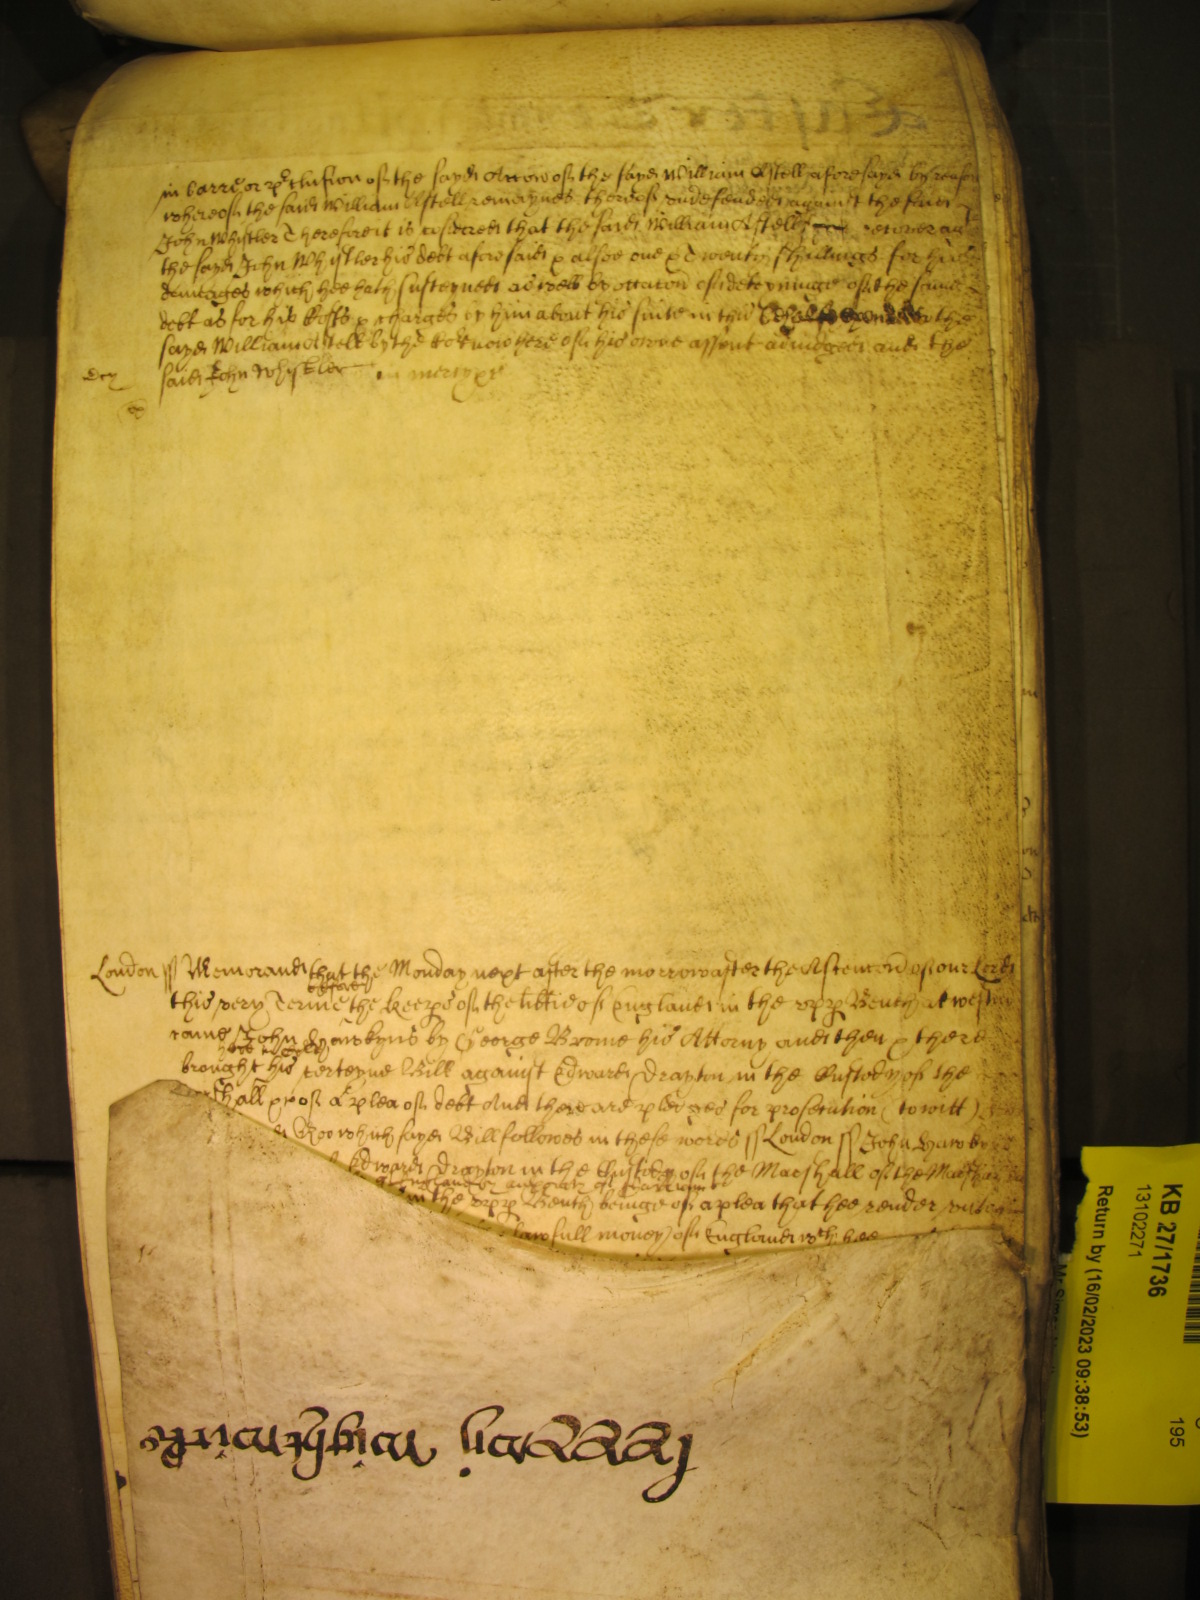 in barre or p'clusion of the sayd Accion of the sayd William Astell aforesayd by reason
whereof the said William Astell remaynes thereof undefended against the said
John Whistler Therefore it is cosidered that the said William Astell recover ag
the sayd John Whistler his debt aforesaid & alsoe one & twenty shillings for his
damages which hee hath susteyned as well by occacon of deteyninge of the same
debt as for his costs & charges by him about his suite in this behalfe to the
sayd William Astell by the Cort now here of his owne assent adiudged and the
said John Whistler in mercy &c
London ss Memorand that the Monday next after the morrow after the Ascencon of our Lord
this very Terme before the keeps of the libtie of England in the upp Bench at Westm
came John Hawkyns by George Brome his Attorny and then & there
brought his certeyne Bill against Edward Drayton in the Custody of the
shall &c of a plea of debt And there are pledges for prosecution (to witt)
Roo which sayd Bill followes in these words ss London ss John Hawkyns
Edward Drayton in the Custody of the Marshall of the Marshal
in the upp Bench beinge of a plea that hee render unto
lawfull money of England wch hee
KB 27/1736
13102271
195
Return by (16/02/2023 09:38:53)